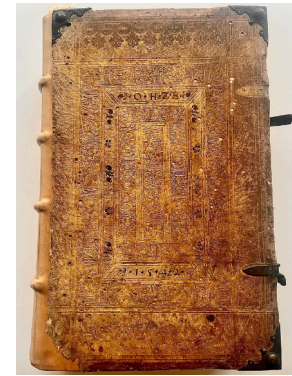 · O · H Z B ·
· 1 · 5 · 4 · 2 ·